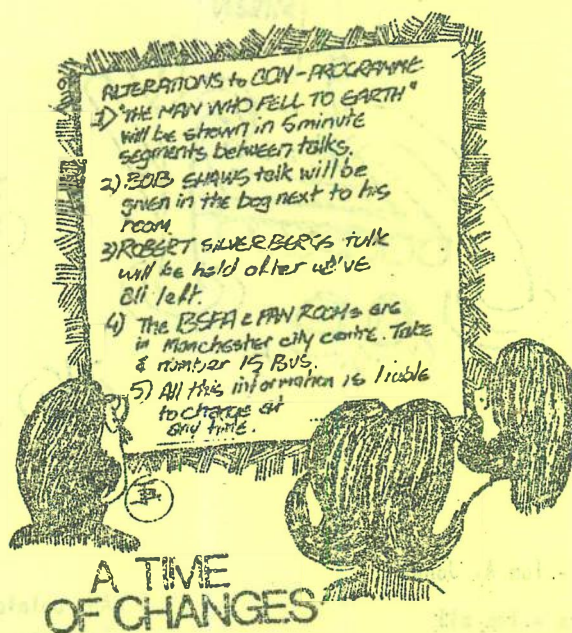 ALTERATIONS to CON-PROGRAMME
1) "THE MAN WHO FELL TO EARTH"
will be shown in 5 minute
segments between talks.
2) BOB SHAWS talk will be
given in the bog next to his
room.
3) ROBERT SILVERBERGS talk
will be held after we've
all left.
4) The BSFA & FAN ROOMs are
in Manchester city centre. Take
a number 15 BUS.
5) All this information is liable
to change at
any time.
A TIME
OF CHANGES